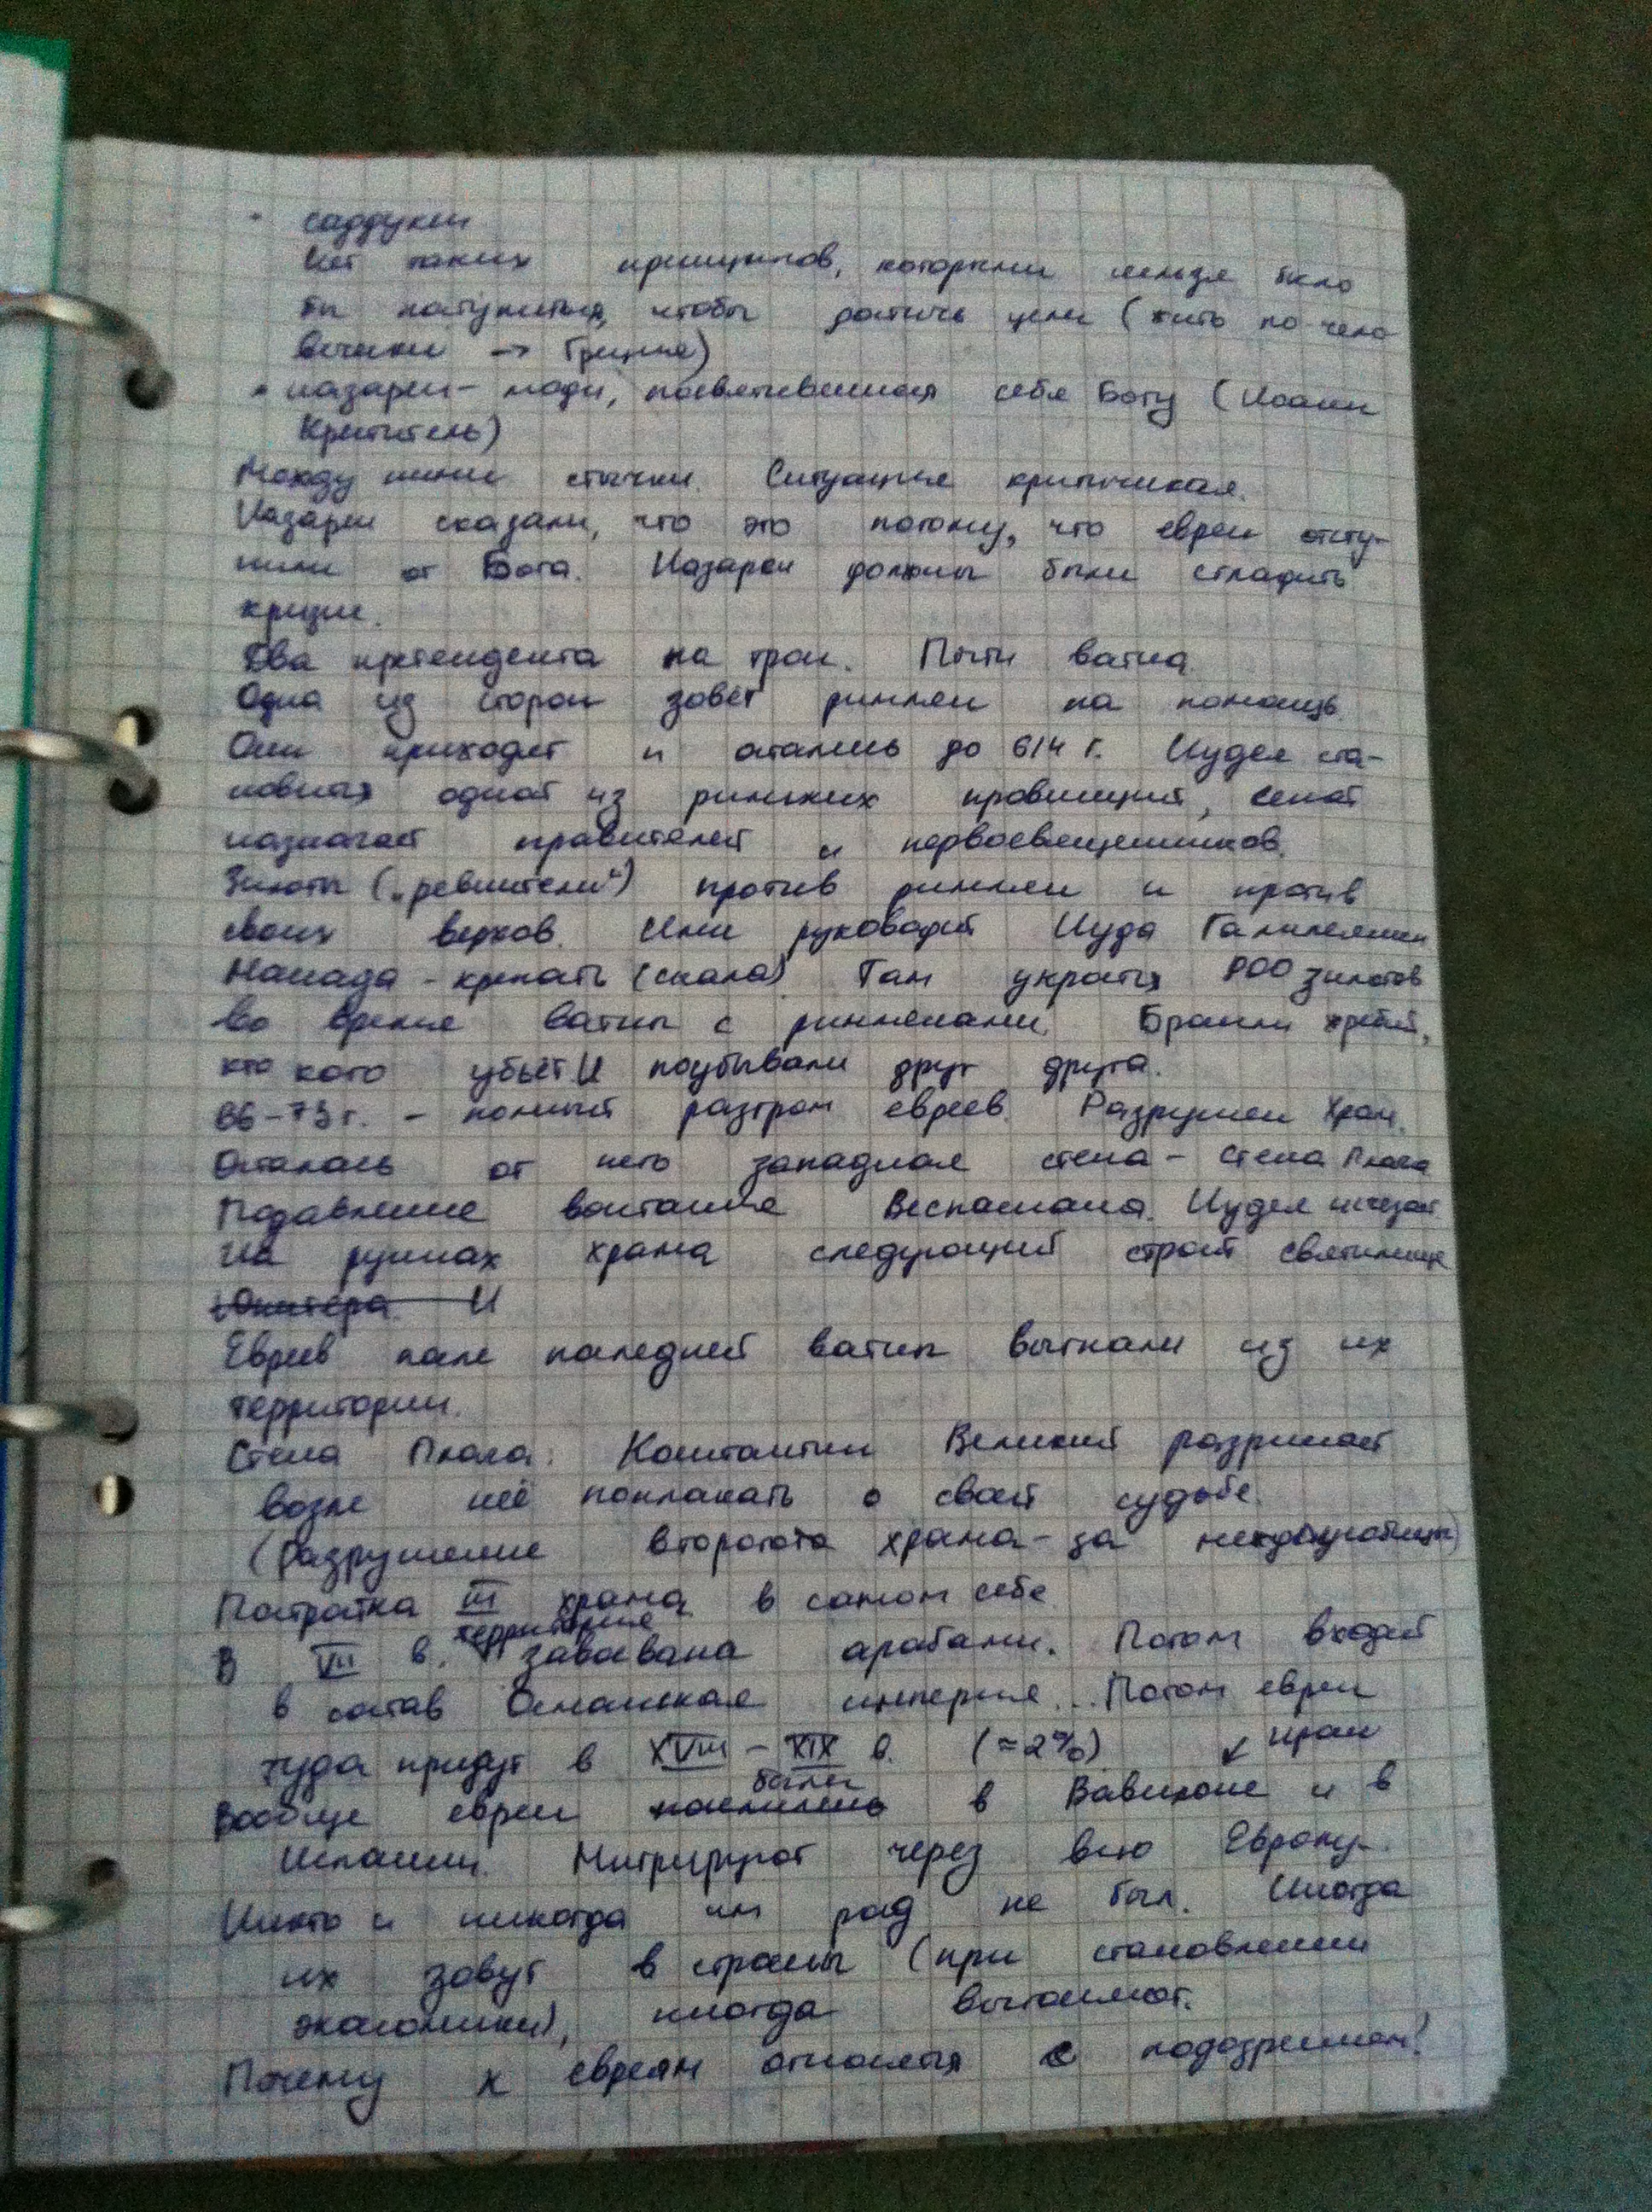 • саддукеи
Нет таких принципов, которыми нельзя было
бы поступиться, чтобы достичь цели (жить по-чело
вечески → Греция)
• назареи - люди, посвятившая себя Богу (Иоанн
Креститель)
Между ними стычки. Ситуация критическая.
Назареи сказали, что это потому, что евреи отсту-
пили от Бога. Назареи должны были сгладить
кризис.
Два претендента на трон. Почти война.
Одна из сторон зовёт римлян на помощь.
Они приходят и остались до 614 г. Иудея ста-
новится одной из римских провинций, сенат
назначает правителей и первосвященников.
Зилоты („ревнители“) против римлян и против
своих верхов. Ими руководит Иуда Галилеянин
Масада - крепость (скала). Там укрылся 900 зилотов
во время войны с римлянами. Бросили жребий,
кто кого убьёт. И поубивали друг друга.
66-73 г. - полный разгром евреев. Разрушен Храм.
Осталась от него западная стена - Стена Плача
Подавление восстания Веспасиана. Иудея исчезает.
На руинах храма следующий строит святилище
Юпитера. И
Евреев после последней войны выгнали из их
территории.
Стена Плача: Константин Великий разрешает
возле неё поплакать о своей судьбе.
(Разрушение второгого храма - за междоусобицы)
Постройка III храма в самом себе.
В VII в. территория завоёвана арабами. Потом входит
в состав Османская империя... Потом евреи
туда придут в XVIII - XIX в. (≈2%) ↙ Иран
Вообще евреи поселились были в Вавилоне и в
Испании. Мигрируют через всю Европу.
Никто и никогда им рад не был. Иногда
их зовут в страны (при становлении
экономики), иногда выгоняют.
Почему к евреям относятся с подозрением?